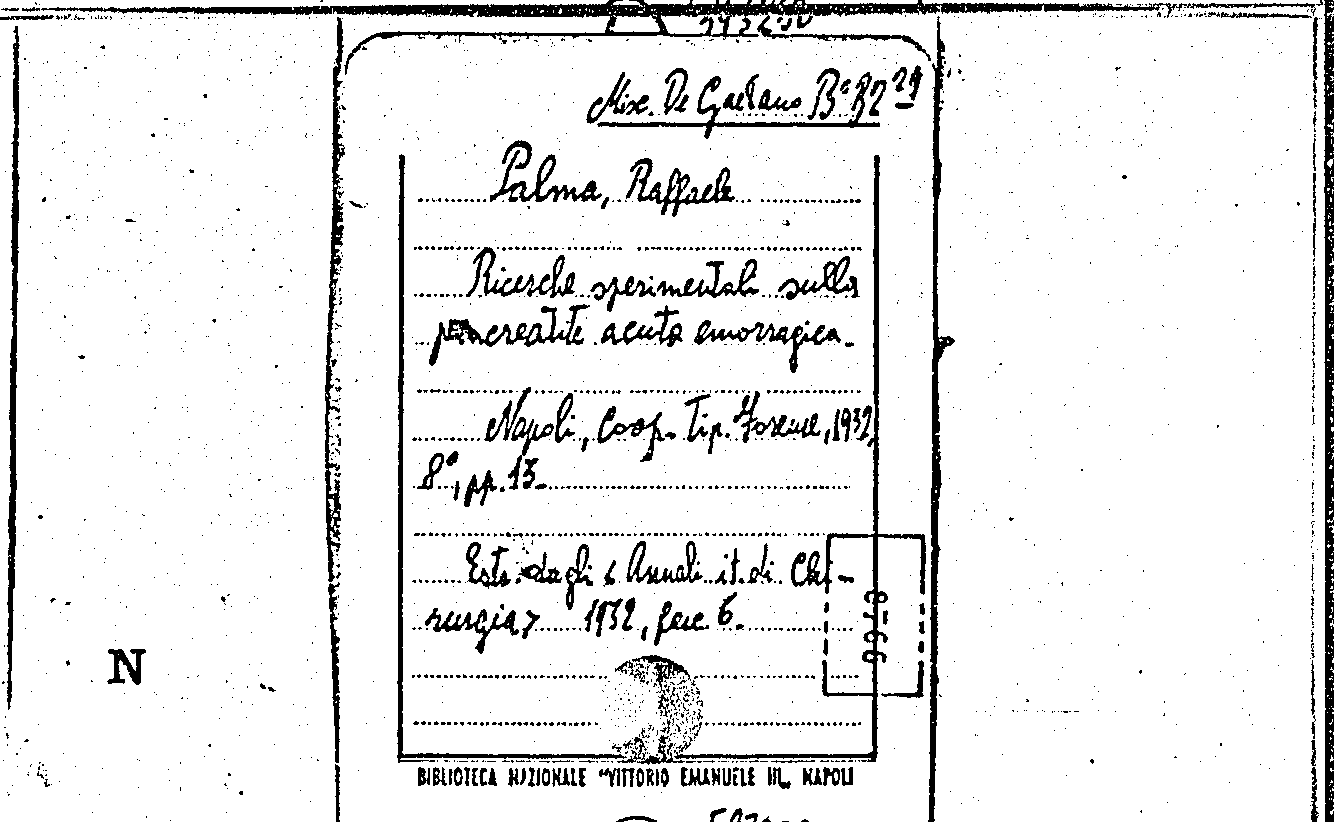 Misc. De Gaetano B° 82 29
Palma, Raffaele
Ricerche sperimentali sulla
pancreatite acuta emorragica.
Napoli, Coop. Tip. Forense, 1932,
8°, pp. 13.
Estr. dagli « Annali it. di Chi-
rurgia » 1932, fasc 6.
N
BIBLIOTECA NAZIONALE "VITTORIO EMANUELE III„ NAPOLI